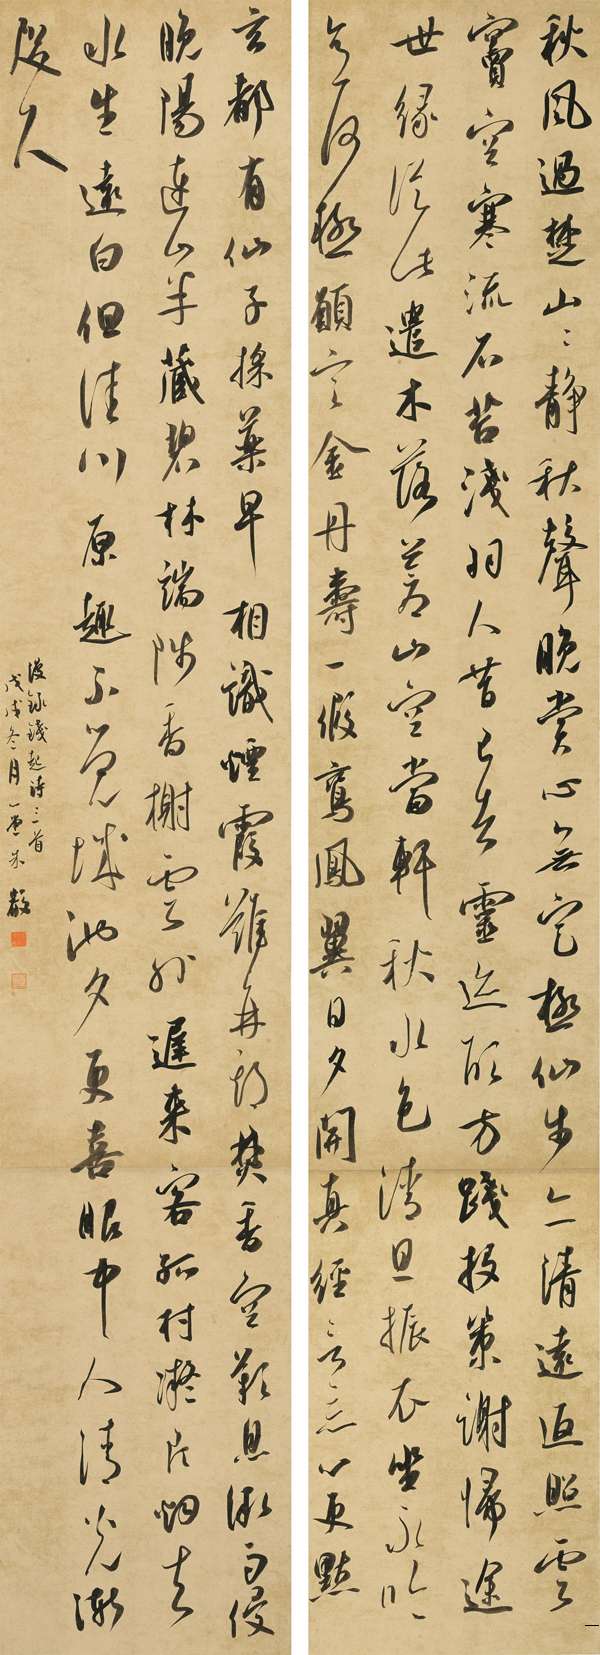 秋風過楚山〻靜秋聲晚賞心無定極仙步亦清遠返照雲
竇空寒流石苔淺羽人昔已去靈迹欣方踐投策謝歸途
世緣從此遣木落蒼山空當軒秋水色清旦振衣坐永吟
意何極願言金丹壽一假鸞鳳翼日夕開真經言忘心更默
玄都有仙子採藥早相識煙霞難再期焚香空歎息微雨侵
晚陽連山半藏碧林端陟香榭雲外遲來客孤村凝片烟去
水生遠白但佳川原趣不覺城池夕更喜眼中人清光漸
咫尺
漫錄錢起詩三首
戊戌冬月